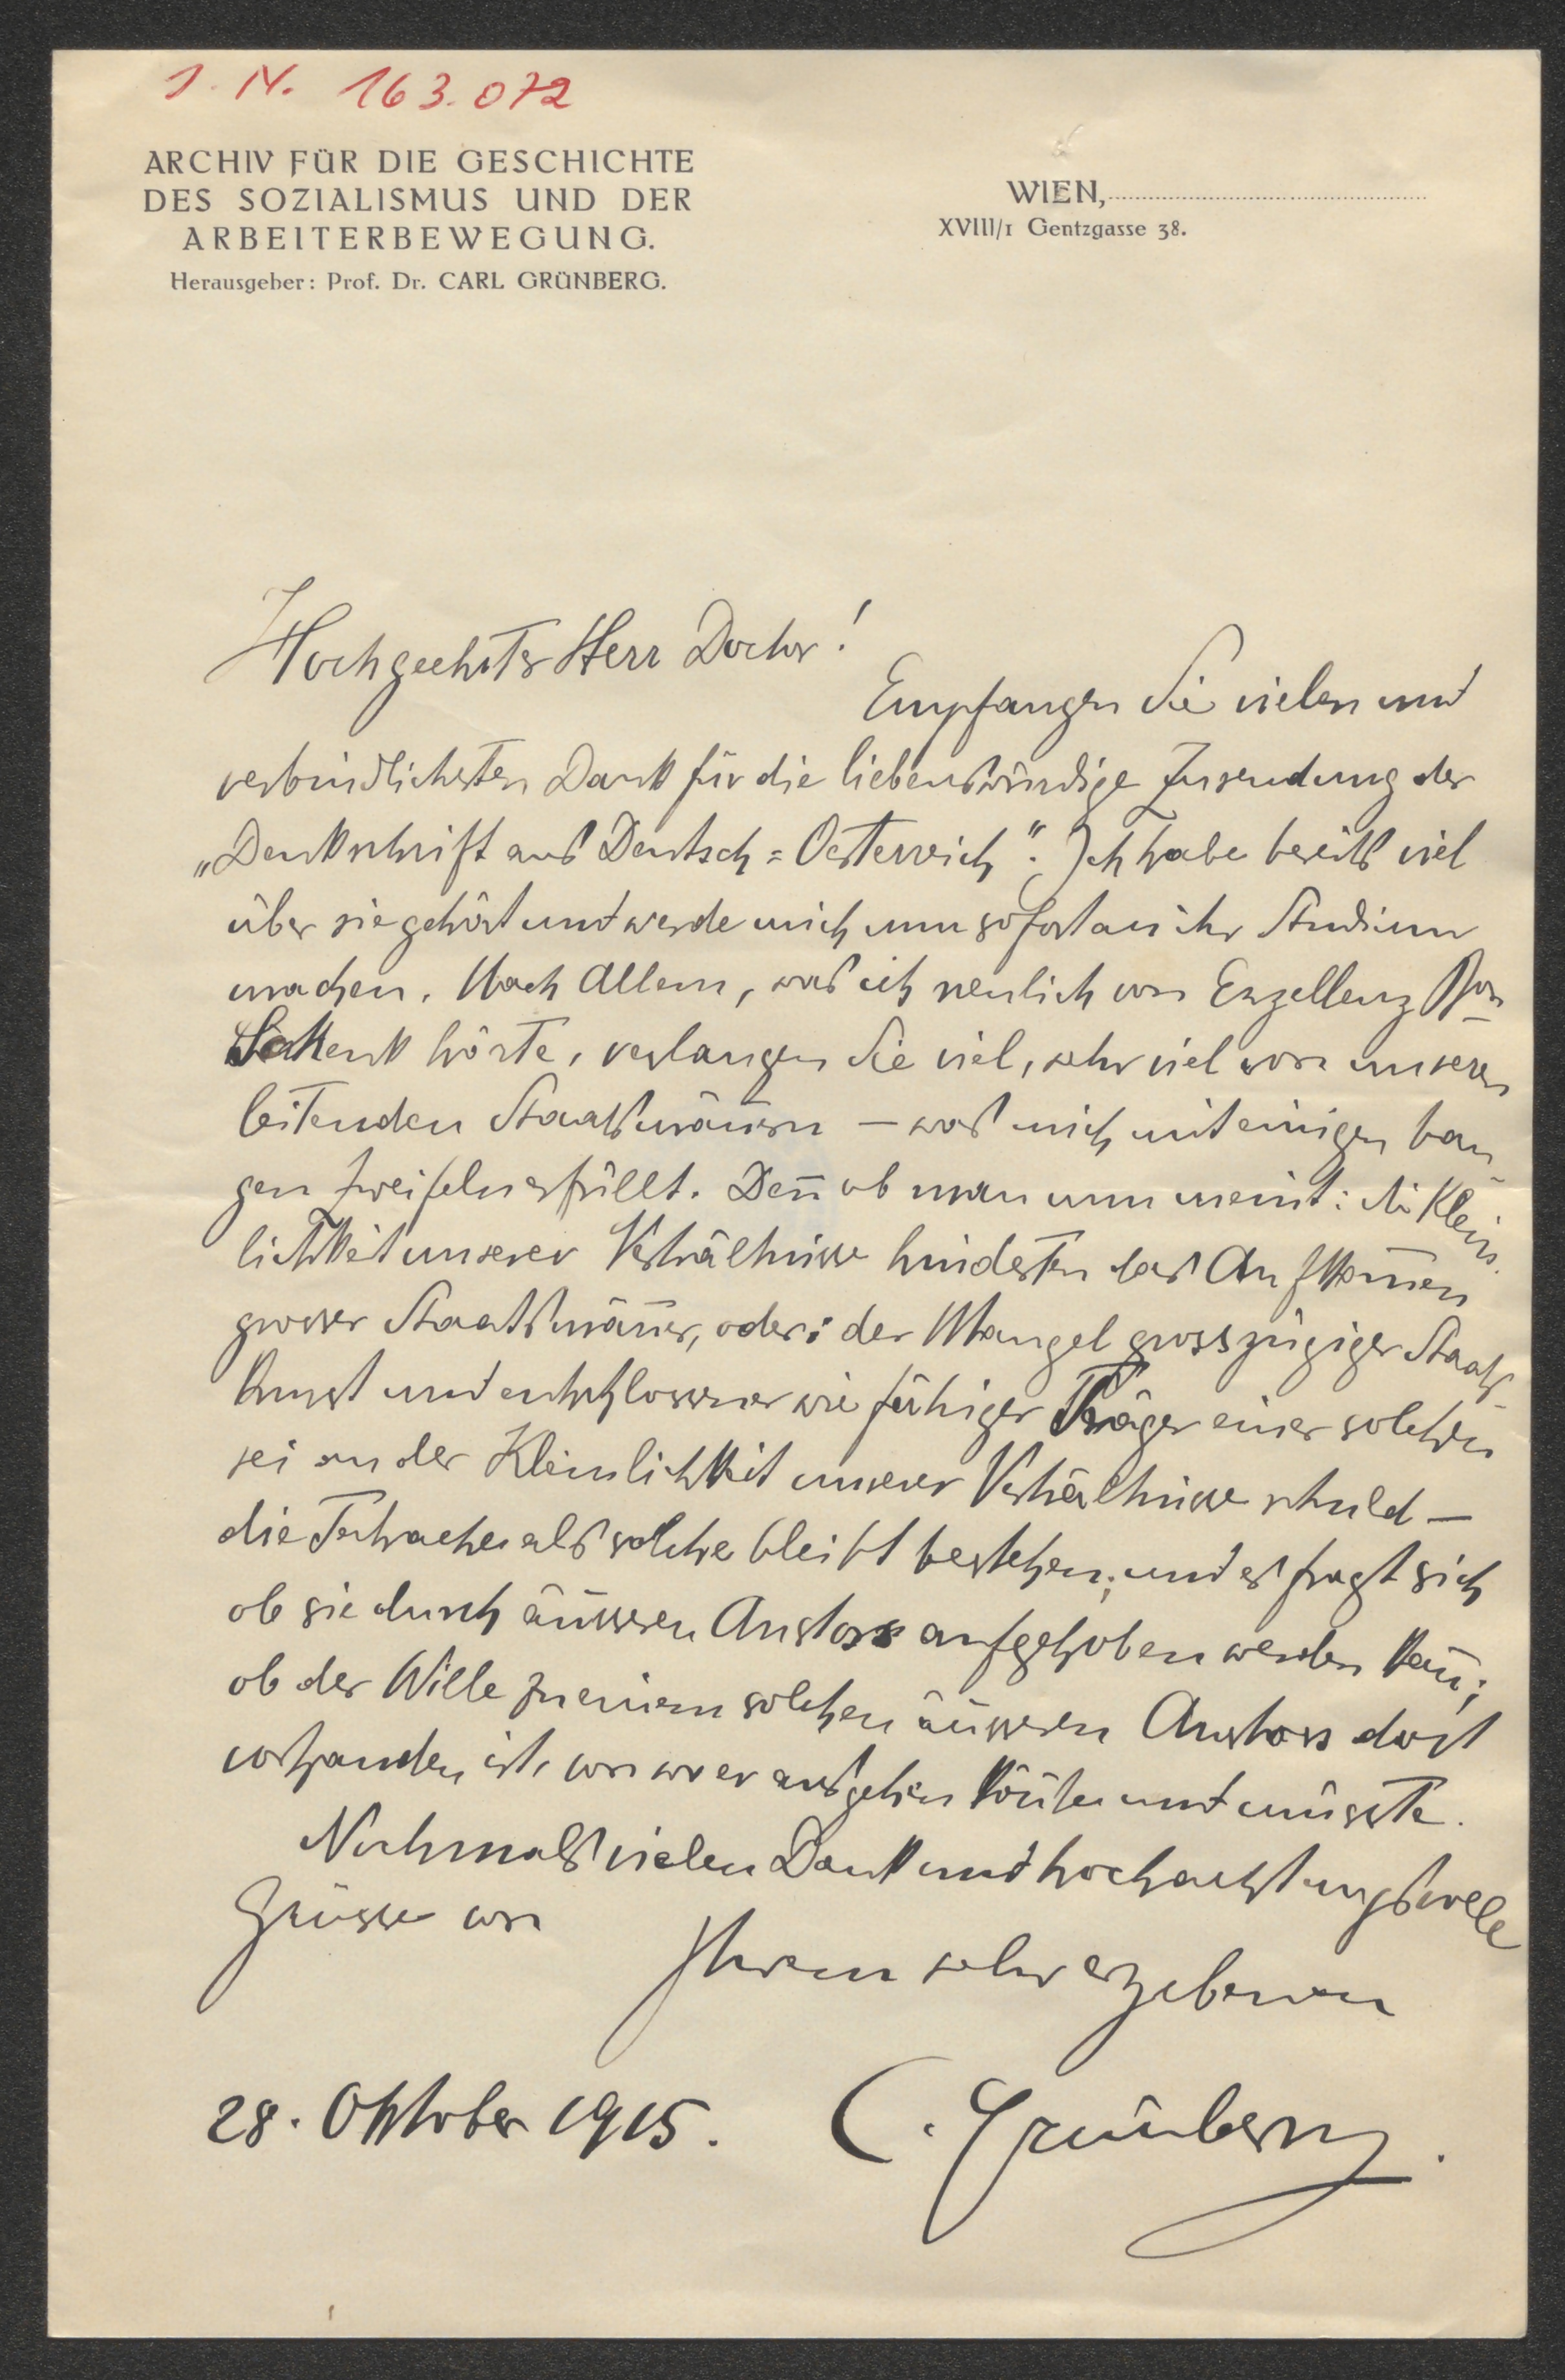 I. N. 163.072
ARCHIV FÜR DIE GESCHICHTE
DES SOZIALISMUS UND DER
ARBEITERBEWEGUNG.
Herausgeber: Prof. Dr. CARL GRÜNBERG.
WIEN,
XVIII/1 Gentzgasse 38.
Hochgeehrter Herr Doctor!
Empfangen Sie vielen und
verbindlichsten Dank für die liebenswürdige Zusendung der
„Denkschrift aus Deutsch=Oesterreich“. Ich habe bereits viel
über sie gehört und werde mich nun sofort an ihr Studium
machen. Nach Allem, was ich neulich von Exzellenz
Schenk hörte, verlangen Sie viel, sehr viel von unseren
leitenden Staatsmännern – was mich mit einigen ban
gen Zweifeln erfüllt. Den̄ ob man nun meint: die Klein
lichkeit unserer Verhältnisse hinderten das Aufkom̄en
grosser Staatsmän̄er, oder: der Mangel grosszügiger Staats
kunst und entschlossener wie fähiger Träger einer solchen
sei an der Kleinlichkeit unserer Verhältnisse schuld –
die Tatsache als solche bleibt bestehen; und es fragt sich
ob sie durch äussern Anstoss aufgehoben werden kan̄;
ob der Wille zu einem solchen äusseren Anstoss dort
vorhanden ist, von wo er ausgehen kön̄te und müsste.
Nochmals vielen Dank und hochachtungsvolle
Grüsse von
Ihrem sehr ergebenen
28. Oktober 1915.
C. Grünberg.